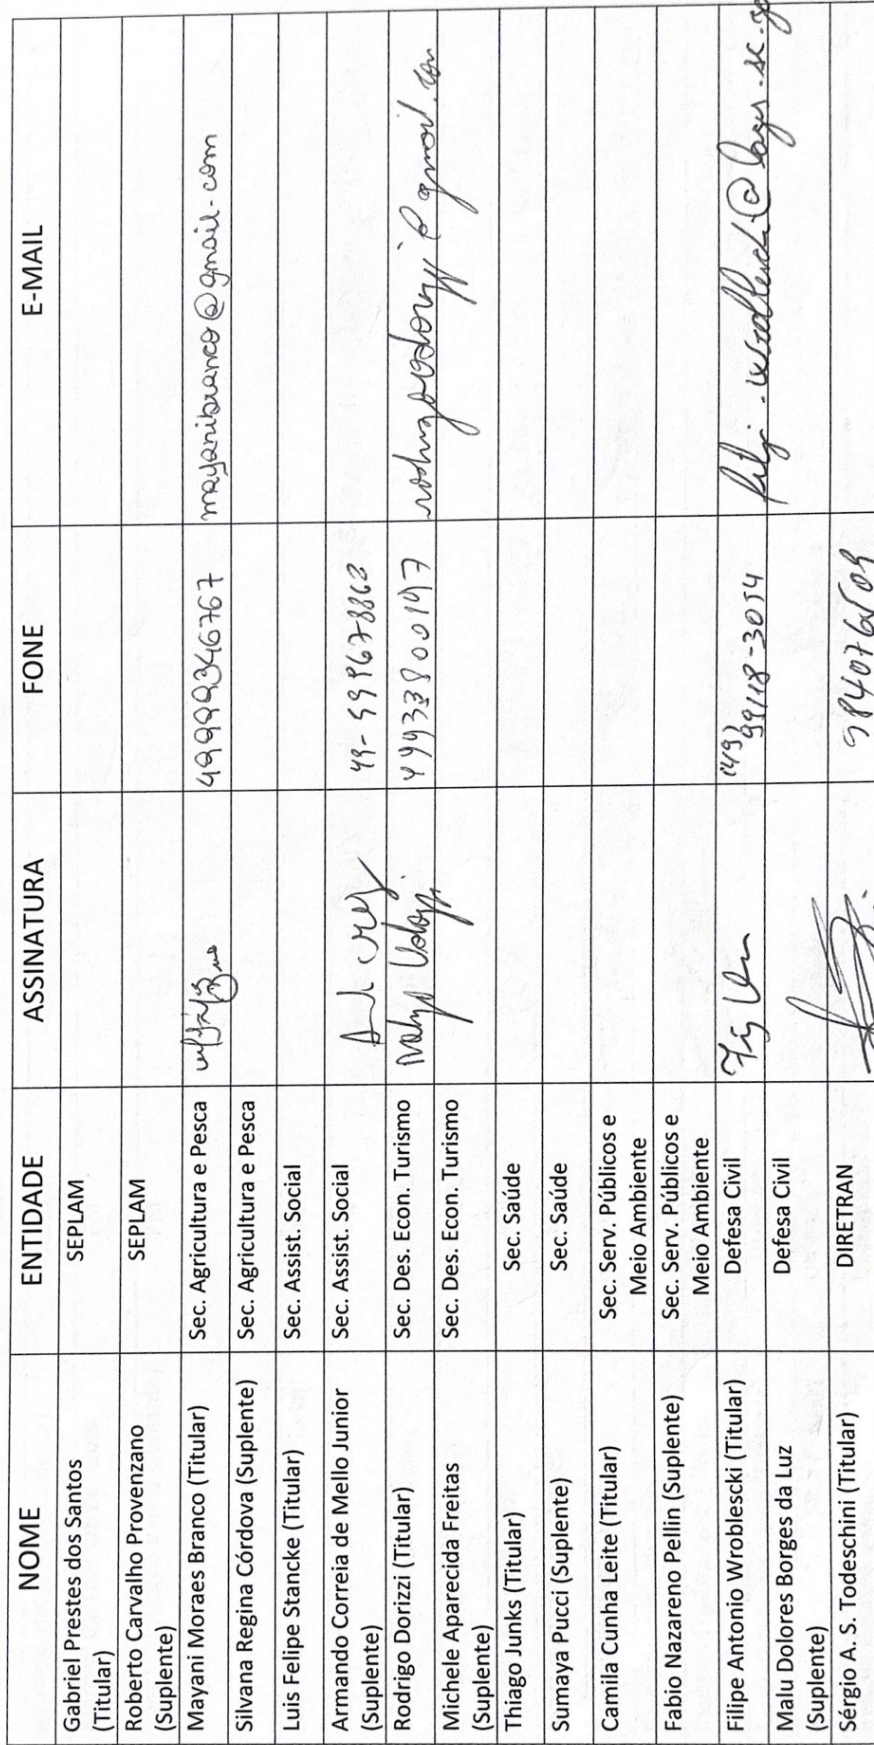 NOME ENTIDADE ASSINATURA FONE E-MAIL
Gabriel Prestes dos Santos
(Titular) SEPLAM
Roberto Carvalho Provenzano
(Suplente) SEPLAM
Mayani Moraes Branco (Titular) Sec. Agricultura e Pesca 49999346767 mayanibranco@gmail.com
Silvana Regina Córdova (Suplente) Sec. Agricultura e Pesca
Luis Felipe Stancke (Titular) Sec. Assist. Social
Armando Correia de Mello Junior
(Suplente) Sec. Assist. Social
Rodrigo Dorizzi (Titular) Sec. Des. Econ. Turismo
Michele Aparecida Freitas
(Suplente) Sec. Des. Econ. Turismo
Thiago Junks (Titular) Sec. Saúde
Sumaya Pucci (Suplente) Sec. Saúde
Camila Cunha Leite (Titular) Sec. Serv. Públicos e
Meio Ambiente
Fabio Nazareno Pellin (Suplente) Sec. Serv. Públicos e
Meio Ambiente
Filipe Antonio Wroblescki (Titular) Defesa Civil (49) 99118-3054
Malu Dolores Borges da Luz
(Suplente) Defesa Civil
Sérgio A. S. Todeschini (Titular) DIRETRAN